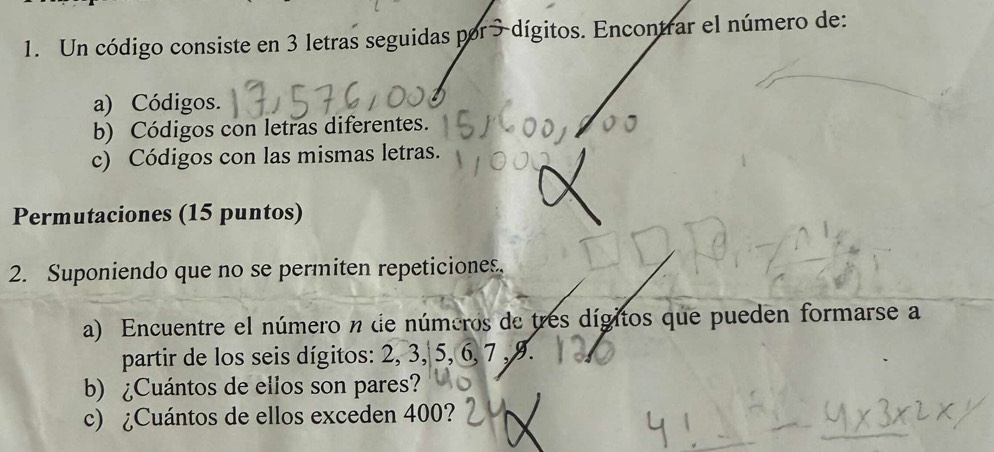 1. Un código consiste en 3 letras seguidas por 3 dígitos. Encontrar el número de:
a) Códigos. 17,576,000
b) Códigos con letras diferentes. 15,600,000
c) Códigos con las mismas letras. 1,000
Permutaciones (15 puntos)
2. Suponiendo que no se permiten repeticiones.
a) Encuentre el número n de números de tres dígitos que pueden formarse a
partir de los seis dígitos: 2, 3, 5, 6, 7 , 9. 120
b) ¿Cuántos de ellos son pares? 40
c) ¿Cuántos de ellos exceden 400? 24
4! 4x3x2x1